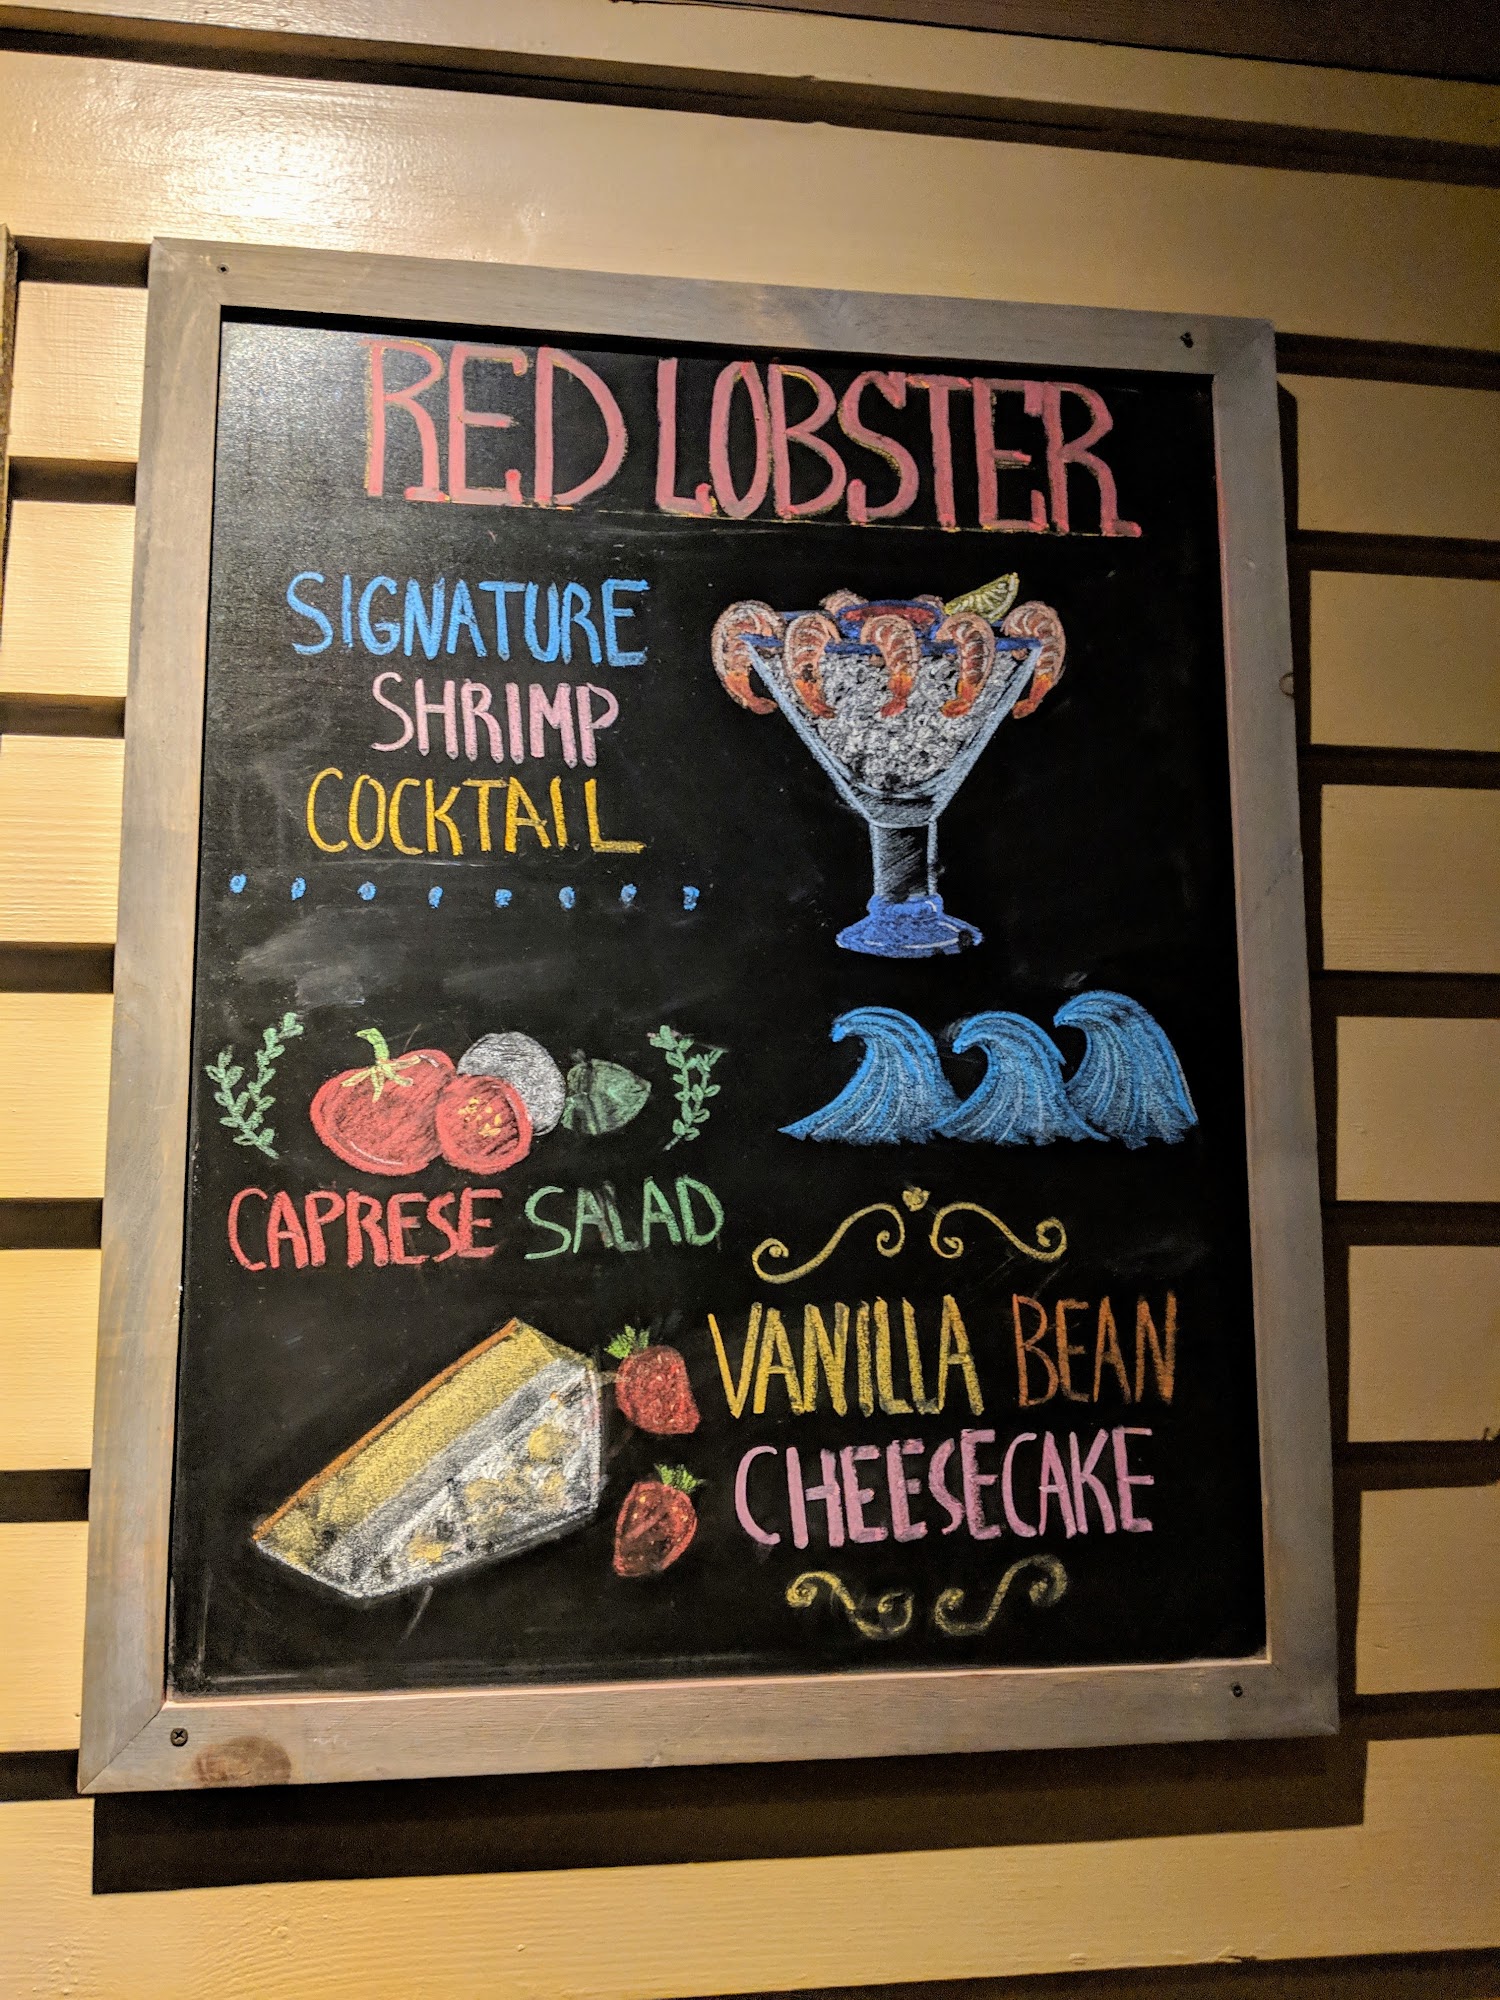 RED LOBSTER
SIGNATURE
SHRIMP
COCKTAIL
CAPRESE SALAD
VANILLA BEAN
CHEESECAKE